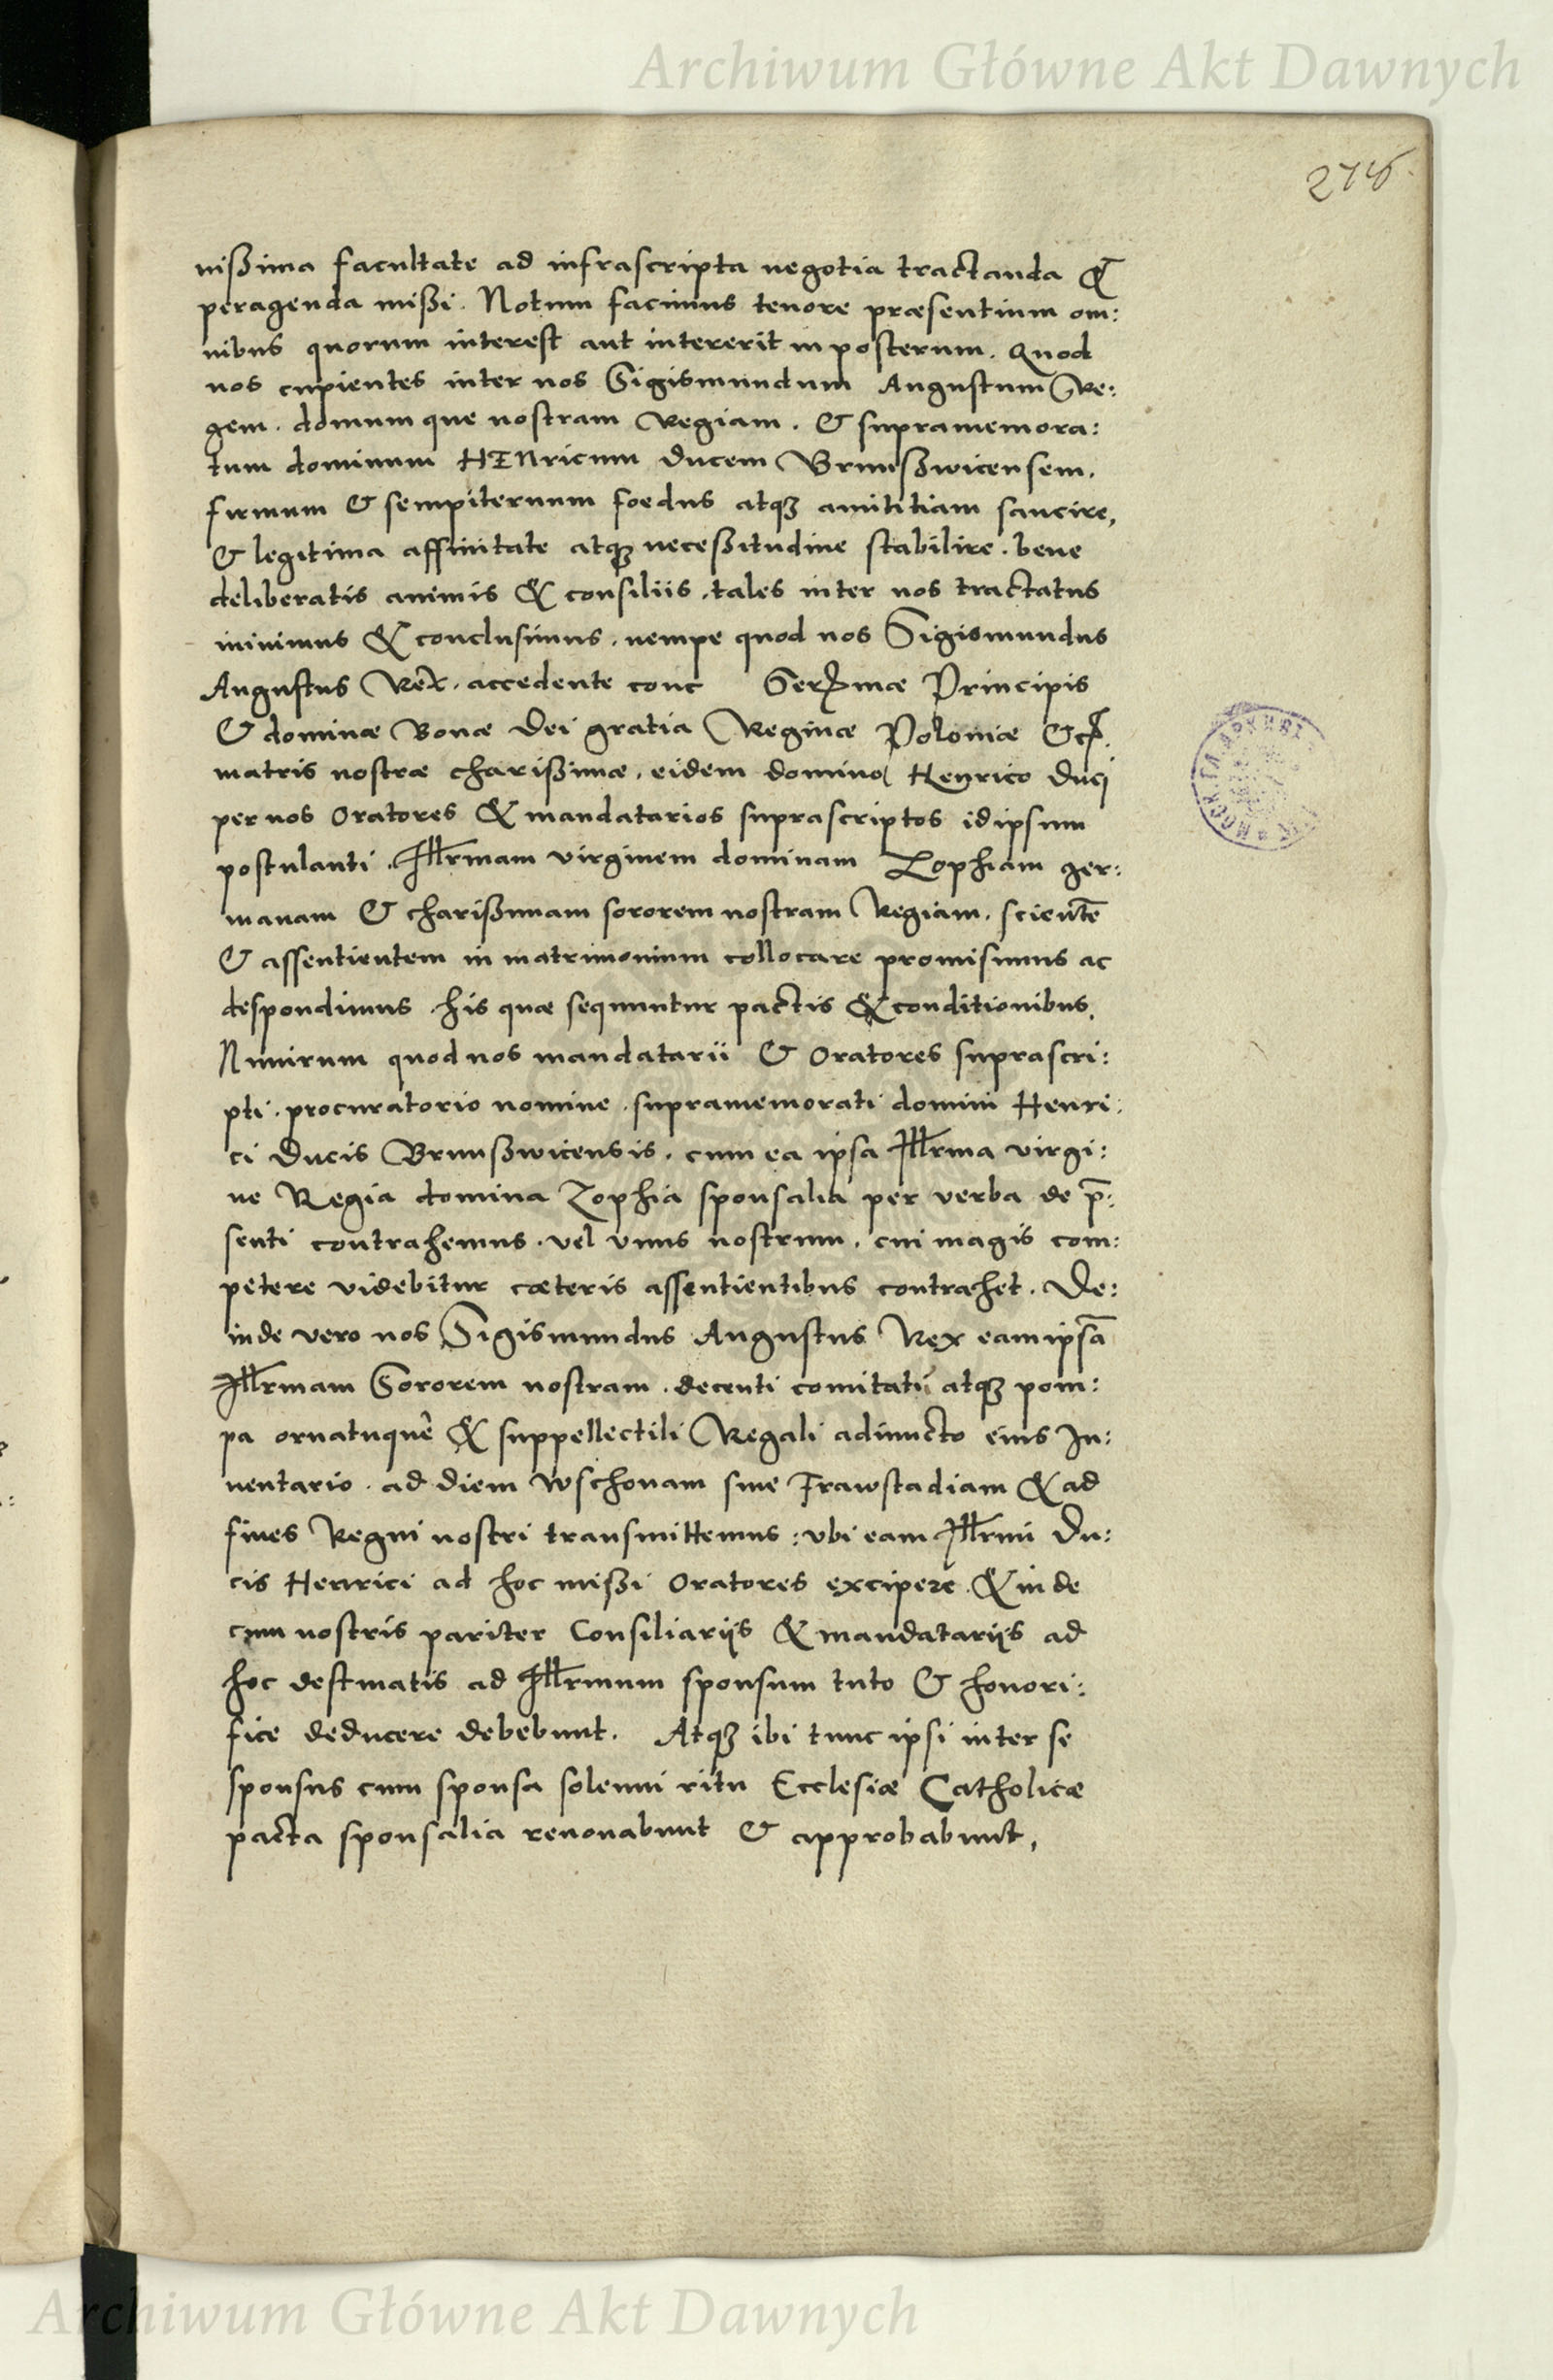 Archiwum Główne Akt Dawnych
nißima facultate ad infrascripta negotia tractanda &
peragenda mißi. Notum facimus tenore præsentium om:
nibus quorum interest aut intererit in posterum. Quod
nos cupientes inter nos Sigismundum Augustum Re:
gem. domumque nostram Regiam. & supramemora:
tum dominum HENricum Ducem Brunßwicensem.
firmum & sempiternum foedus atq3 amititiam sancire,
& legitima affinitate atq3 neceßitudine stabilire. bene
deliberatis animis & consiliis. tales inter nos tractatus
inivimus & conclusimus. nempe quod nos Sigismundus
Augustus Rex. accedente conc Serᵉⁿⁱˢmæ Principis
& dominæ Bonæ Dei gratia Reginæ Poloniæ &c.
matris nostræ charißimæ. eidem domino Henrico Duci
per nos Oratores & mandatarios suprascriptos idipsum
postulanti. Illrmam virginem dominam Zophiam ger:
manam & charißimam sororem nostram Regiam. scientē
& assentientem in matrimonium collocare promisimus ac
despondimus. his quæ sequuntur pactis & conditionibus.
Nimirum quod nos mandatarii & Oratores suprascri:
pti. procuratorio nomine. supramemorati domini Henri:
ci Ducis Brunßwicensis. cum ea ipsa Illrma virgi:
ne Regia domina Zophia sponsalia per verba de p̄:
senti contrahemus. vel vnus nostrum. cui magis com:
petere videbitur cæteris assentientibus contrahet. De:
inde vero nos Sigismundus Augustus Rex eam ipsā
Illrmam Sororem nostram. decenti comitatu atq3 pom:
pa ornatuque & suppellectili Regali adiuncto eius In:
uentario. ad diem Wschouam siue Frawstadiam & ad
fines Regni nostri transmittemus: vbi eam Illrmi Du:
cis Henrici ad hoc mißi Oratores excipere. & inde
cum nostris pariter Consiliarijs & mandatarijs ad
hoc destinatis ad Illrmum sponsum tuto & honori:
fice deducere debebunt. Atq3 ibi tunc ipsi inter se
sponsus cum sponsa solenni ritu Ecclesiæ Catholicæ
pacta sponsalia renouabunt & approbabunt,
Archiwum Główne Akt Dawnych